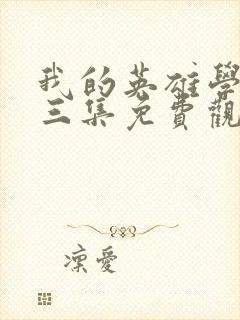 我的英雄學
三集免費觀
凜愛